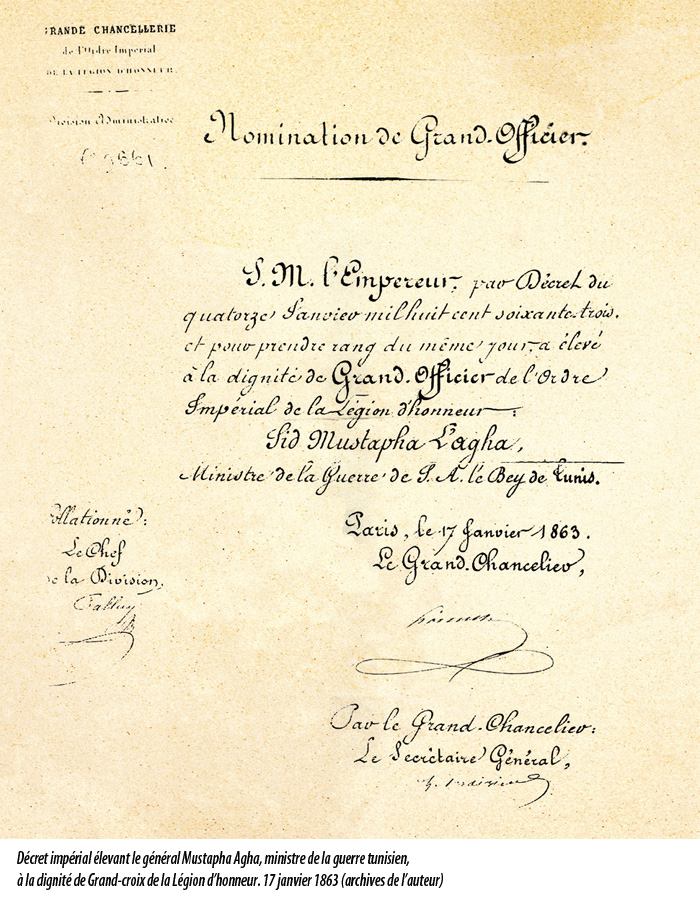 GRANDE CHANCELLERIE
de l'Ordre Impérial
DE LA LÉGION D'HONNEUR.
Division Administrative
Nomination de Grand-Officier.
S. M. l'Empereur, par Décret du
quatorze Janvier mil huit cent soixante-trois,
et pour prendre rang du même jour, a élevé
à la dignité de Grand-Officier de l'Ordre
Impérial de la Légion d'honneur :
Sid Mustapha L'agha,
Ministre de la Guerre de S. A. le Bey de Tunis.
ollationné :
Le Chef
de la Division,
Paris, le 17 Janvier 1863.
Le Grand-Chancelier,
Par le Grand-Chancelier :
Le Secrétaire Général,
Décret impérial élevant le général Mustapha Agha, ministre de la guerre tunisien,
à la dignité de Grand-croix de la Légion d'honneur. 17 janvier 1863 (archives de l'auteur)